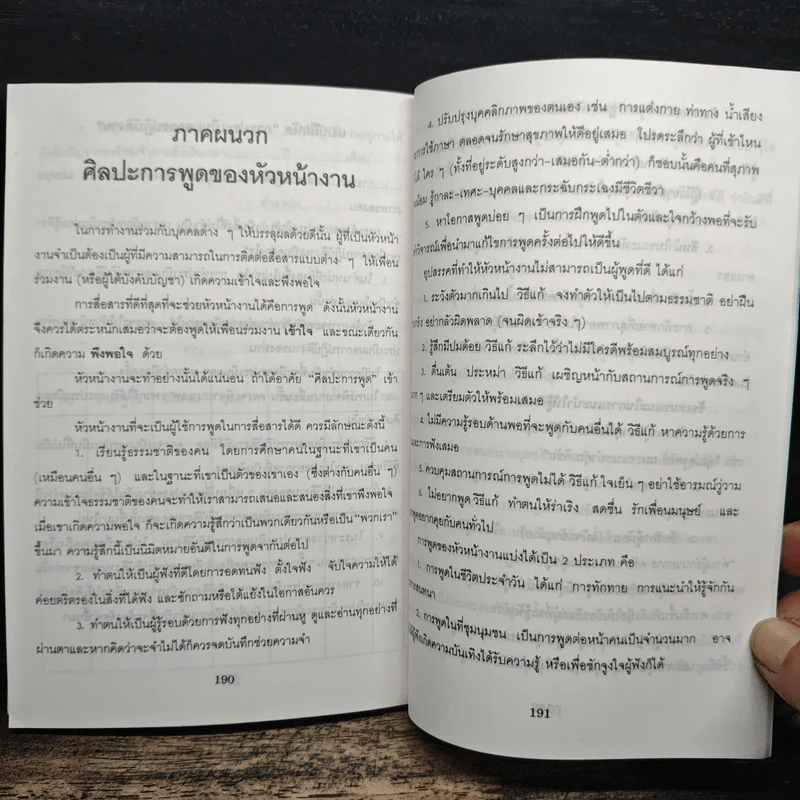 ภาคผนวก
ศิลปะการพูดของหัวหน้างาน
ในการทำงานร่วมกับบุคคลต่าง ๆ ให้บรรลุผลด้วยดีนั้น ผู้ที่เป็นหัวหน้า
งานจำเป็นต้องเป็นผู้ที่มีความสามารถในการติดต่อสื่อสารแบบต่าง ๆ ให้เพื่อน
ร่วมงาน (หรือผู้ใต้บังคับบัญชา) เกิดความเข้าใจและพึงพอใจ
การสื่อสารที่ดีที่สุดที่จะช่วยหัวหน้างานได้คือการพูด ดังนั้นหัวหน้างาน
จึงควรได้ตระหนักเสมอว่าจะต้องพูดให้เพื่อนร่วมงาน เข้าใจ และขณะเดียวกัน
ก็เกิดความ พึงพอใจ ด้วย
หัวหน้างานจะทำอย่างนั้นได้แน่นอน ถ้าได้อาศัย "ศิลปะการพูด" เข้า
ช่วย
หัวหน้างานที่จะเป็นผู้ใช้การพูดในการสื่อสารได้ดี ควรมีลักษณะดังนี้
1. เรียนรู้ธรรมชาติของคน โดยการศึกษาคนในฐานะที่เขาเป็นคน
(เหมือนคนอื่น ๆ) และในฐานะที่เขาเป็นตัวของเขาเอง (ซึ่งต่างกับคนอื่น ๆ)
ความเข้าใจธรรมชาติของคนจะทำให้เราสามารถเสนอและสนองสิ่งที่เขาพึงพอใจ
เมื่อเขาเกิดความพอใจ ก็จะเกิดความรู้สึกว่าเป็นพวกเดียวกันหรือเป็น "พวกเรา"
ขึ้นมา ความรู้สึกนี้เป็นนิมิตหมายอันดีในการพูดจากันต่อไป
2. ทำตนให้เป็นผู้ฟังที่ดีโดยการอดทนฟัง ตั้งใจฟัง จับใจความให้ได้
ค่อยตริตรองในสิ่งที่ได้ฟัง และซักถามหรือโต้แย้งในโอกาสอันควร
3. ทำตนให้เป็นผู้รู้รอบด้วยการฟังทุกอย่างที่ผ่านหู ดูและอ่านทุกอย่างที่
ผ่านตาและหากคิดว่าจะจำไม่ได้ก็ควรจดบันทึกช่วยความจำ
190
4. ปรับปรุงบุคคลิกภาพของตนเอง เช่น การแต่งกาย ท่าทาง น้ำเสียง
การใช้ภาษา ตลอดจนรักษาสุขภาพให้ดีอยู่เสมอ โปรดระลึกว่า ผู้ที่เข้าไหน
ได้ ใคร ๆ (ทั้งที่อยู่ระดับสูงกว่า-เสมอกัน-ต่ำกว่า) ก็ชอบนั้นคือคนที่สุภาพ
รู้กาละ-เทศะ-บุคคลและกระฉับกระเฉงมีชีวิตชีวา
5. หาโอกาสพูดบ่อย ๆ เป็นการฝึกพูดไปในตัวและใจกว้างพอที่จะรับ
คำวิจารณ์เพื่อนำมาแก้ไขการพูดครั้งต่อไปให้ดีขึ้น
อุปสรรคที่ทำให้หัวหน้างานไม่สามารถเป็นผู้พูดที่ดี ได้แก่
1. ระวังตัวมากเกินไป วิธีแก้ จงทำตัวให้เป็นไปตามธรรมชาติ อย่าฝืน
อย่ากลัวผิดพลาด (จนผิดเข้าจริง ๆ)
2. รู้สึกมีปมด้อย วิธีแก้ ระลึกไว้ว่าไม่มีใครดีพร้อมสมบูรณ์ทุกอย่าง
3. ตื่นเต้น ประหม่า วิธีแก้ เผชิญหน้ากับสถานการณ์การพูดจริง ๆ
ๆ และเตรียมตัวให้พร้อมเสมอ
4. ไม่มีความรู้รอบด้านพอที่จะพูดกับคนอื่นได้ วิธีแก้ หาความรู้ด้วยการ
การฟังเสมอ
5. ควบคุมสถานการณ์การพูดไม่ได้ วิธีแก้ ใจเย็น ๆ อย่าใช้อารมณ์วู่วาม
6. ไม่อยากพูด วิธีแก้ ทำตนให้ร่าเริง สดชื่น รักเพื่อนมนุษย์ และ
พูดอยากคุยกับคนทั่วไป
การพูดของหัวหน้างานแบ่งได้เป็น 2 ประเภท คือ
1. การพูดในชีวิตประจำวัน ได้แก่ การทักทาย การแนะนำให้รู้จักกัน
การสนทนา
2. การพูดในที่ชุมนุมชน เป็นการพูดต่อหน้าคนเป็นจำนวนมาก อาจ
ผู้ฟังเกิดความบันเทิงได้รับความรู้ หรือเพื่อชักจูงใจผู้ฟังก็ได้
191